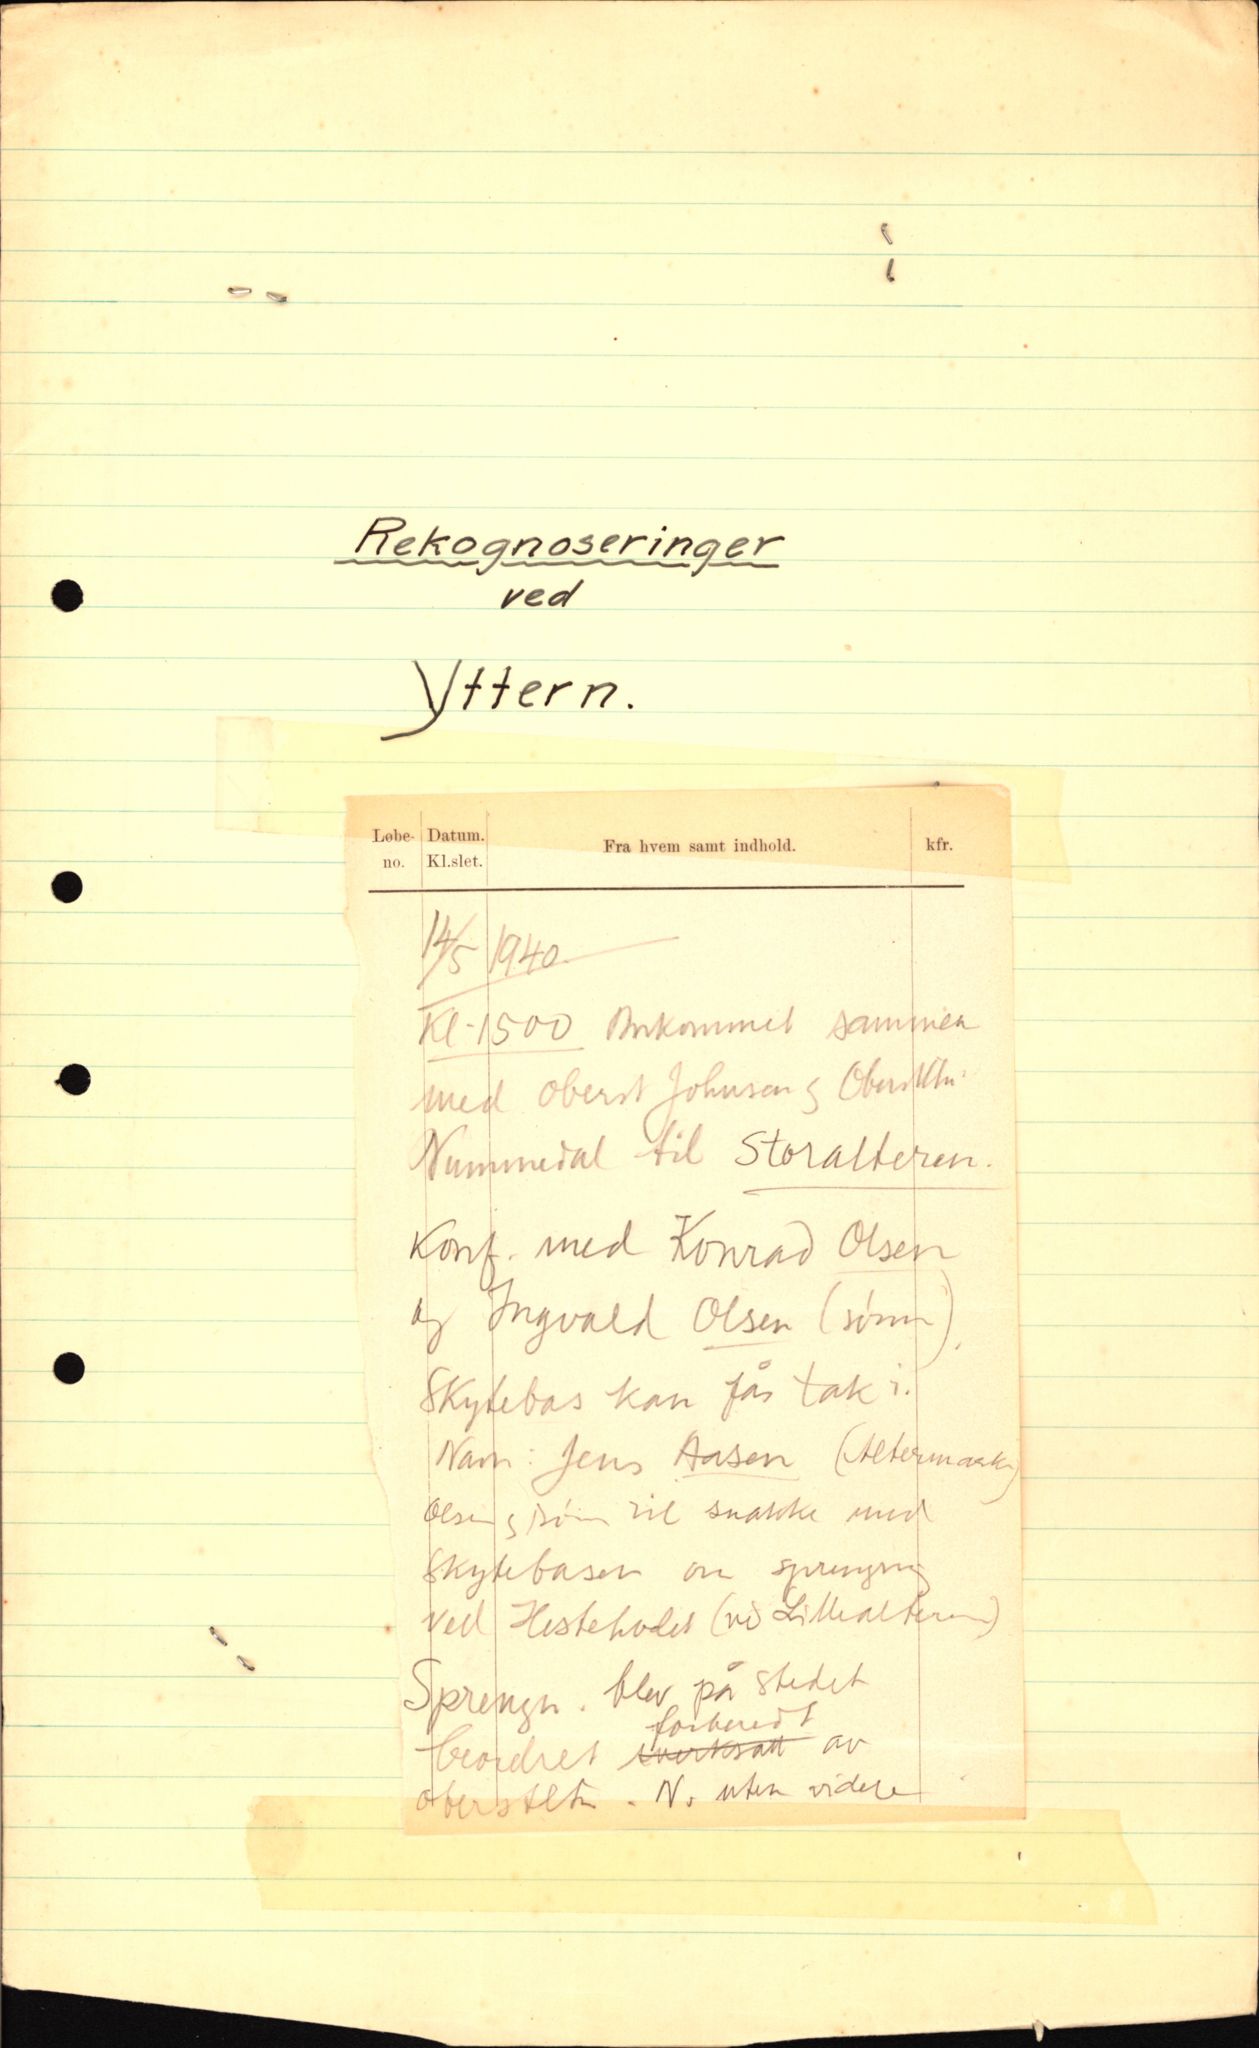 Rekognoseringer
ved
Yttern.
Løbe-no. Datum. Kl.slet. Fra hvem samt indhold. kfr.
14/5 1940.
Kl. 1500 Ankommet sammen
med oberst Johnsen & Oberstltn.
Nummedal til Storalteren.
Konf. med Konrad Olsen
og Ingvald Olsen (sønn).
Skytebas kan fås tak i.
Navn: Jens Aasen (Altermark)
Olsen & sønn vil snakke med
skytebasen om sprengning
ved Hestehodet (ved Lillealteren)
Sprengn. blev på stedet
beordret iverksatt forberedt av
oberstltn. N. uten videre